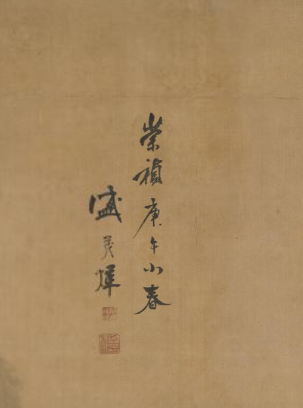 崇禎庚午小春
盛茂燁